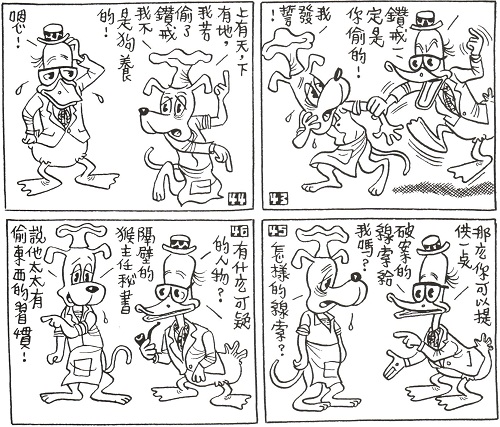 鑽戒一
定是
你偷的!
我
發
誓!
43
上有天,下
有地,
我若
偷了
鑽戒
我不
是狗養
的!
嗯!
44
那么你可以提
供一点
破案的
線索給
我嗎?
怎樣的線索?
45
有什么可疑
的人物?
隔壁的
猴主任秘書
說他太太有
偷東西的習慣!
46